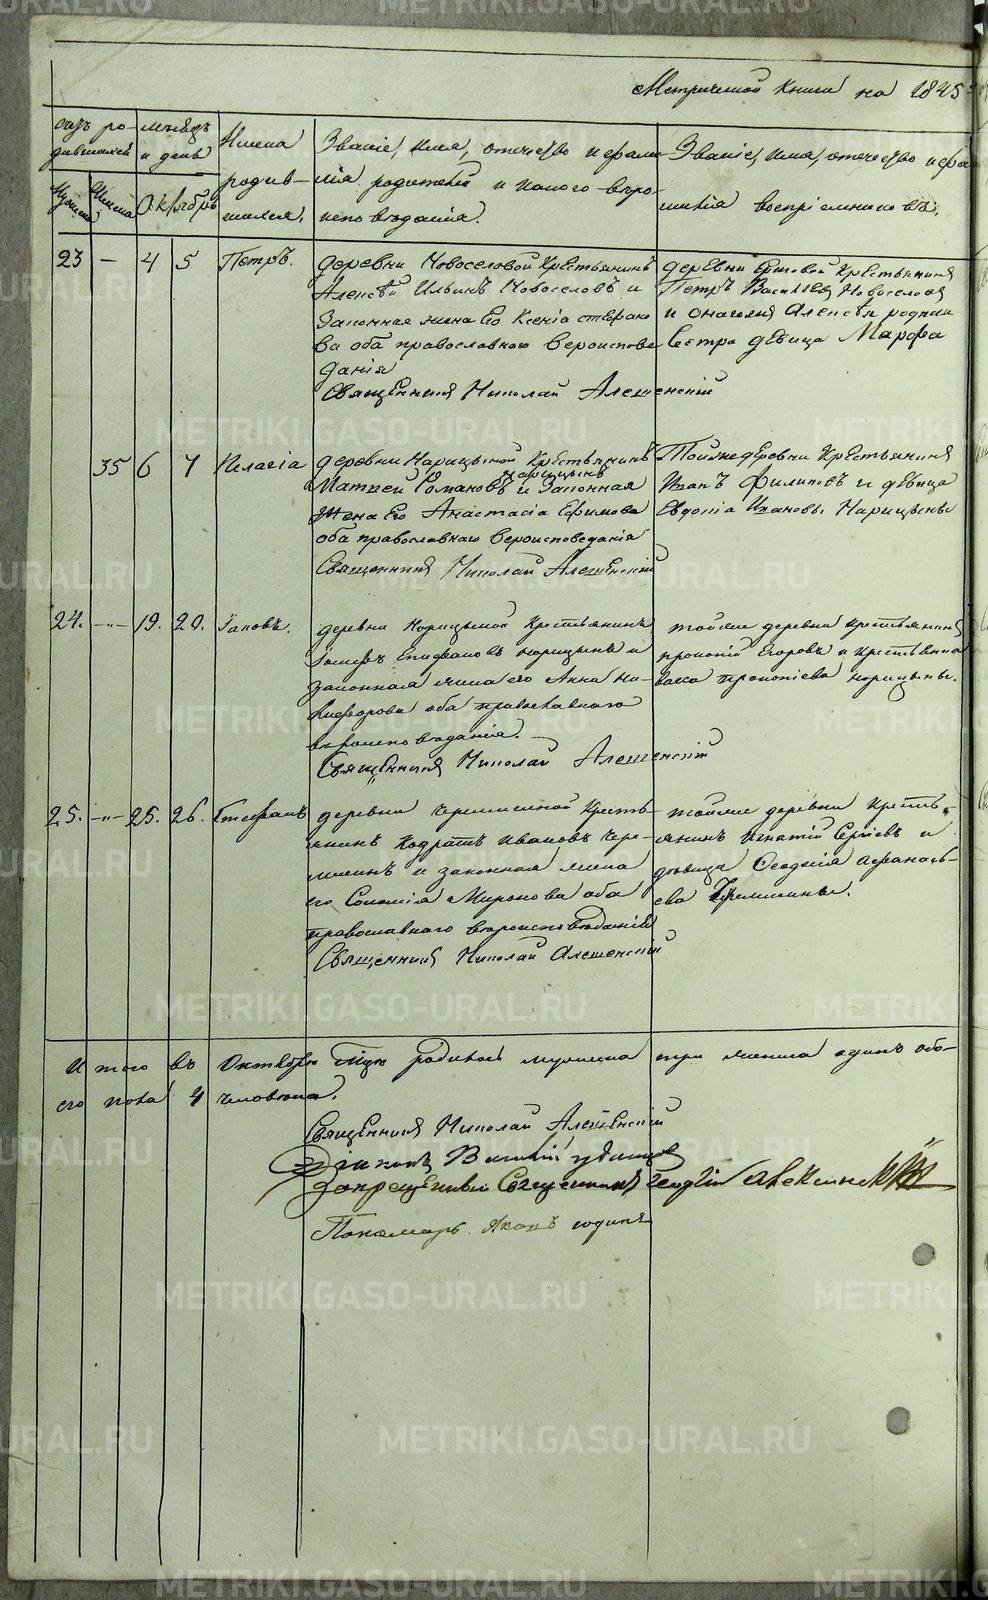 Метрической Книги на 1845
счетъ ро-
дившихся
мѣсяцъ
и день
Имена
родив-
шихся.
Званіе, имя, отчество и фами
лія родителей и какого вѣро
исповѣданія.
Званіе, имя, отчество и фа
милія воспріемниковъ.
Октябрь
23 — 4 5 Петръ.
деревни Новоселовой Крестьянинъ
Алексѣй Ильинъ Новоселовъ и
Законная жена Его Ксенія
ва оба православнаго Вероиспове
данія
Священникъ Николай
деревни Крестьянинъ
Петръ Василіев Новоселовъ
и Алексѣя родная
Сестра дѣвица Марфа
35 6 7 Пелагія
деревни Нарицыной Крестьянинъ
Нарицынъ
Матвей Романовъ и Законная
Жена Его Анастасія Ефимова
оба православнаго Вероисповеданія
Священникъ Николай
Тойже деревни Крестьянинъ
Иванъ Филиповъ и дѣвица
Евдокія Иванова Нарицыны
24. -"- 19. 20. Іаковъ.
деревни Норицыной Крестьянинъ
Іосифъ Епифановъ Норицынъ и
законная жена его Анна Ни-
кифорова оба православнаго
вѣроисповѣданія.
Священникъ Николай
тойже деревни крестьянинъ
прокопій Егоровъ и крестьянка
прокопіева норицыны.
25. -"- 25. 26. Стефанъ
деревни Черемисиной Кресть-
янинъ Кодратъ Ивановъ Чере-
мисинъ и законная жена
его Соломія Миронова оба
православнаго вѣроисповѣданія
Священникъ Николай
тойже деревни Кресть-
янинъ Игнатій Сергіевъ и
Феодосія Афанась-
ева Черемисины.
И того въ Октябрѣ родилось мужеска три женска одинъ обо-
его пола 4 человѣка.
Священникъ Николай
Діаконъ Василій
Запрещенный Священникъ Георгій
Пономарь Яковъ
METRIKI.GASO-URAL.RU